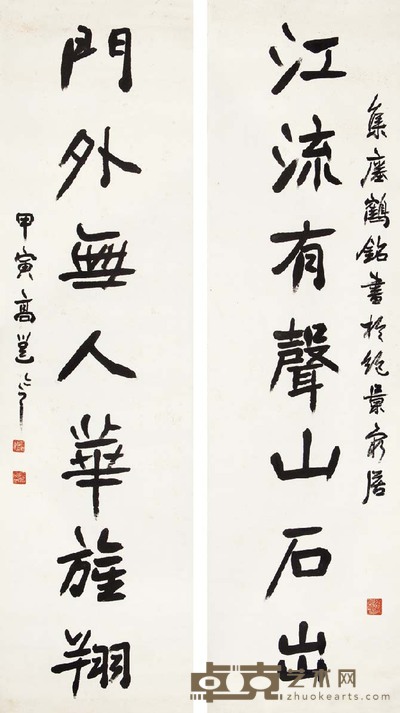 集瘞鶴銘書於絕景窮居
江流有聲山石出
門外無人華旌翔
甲寅高邕
卓克艺术网
zhuokearts.com